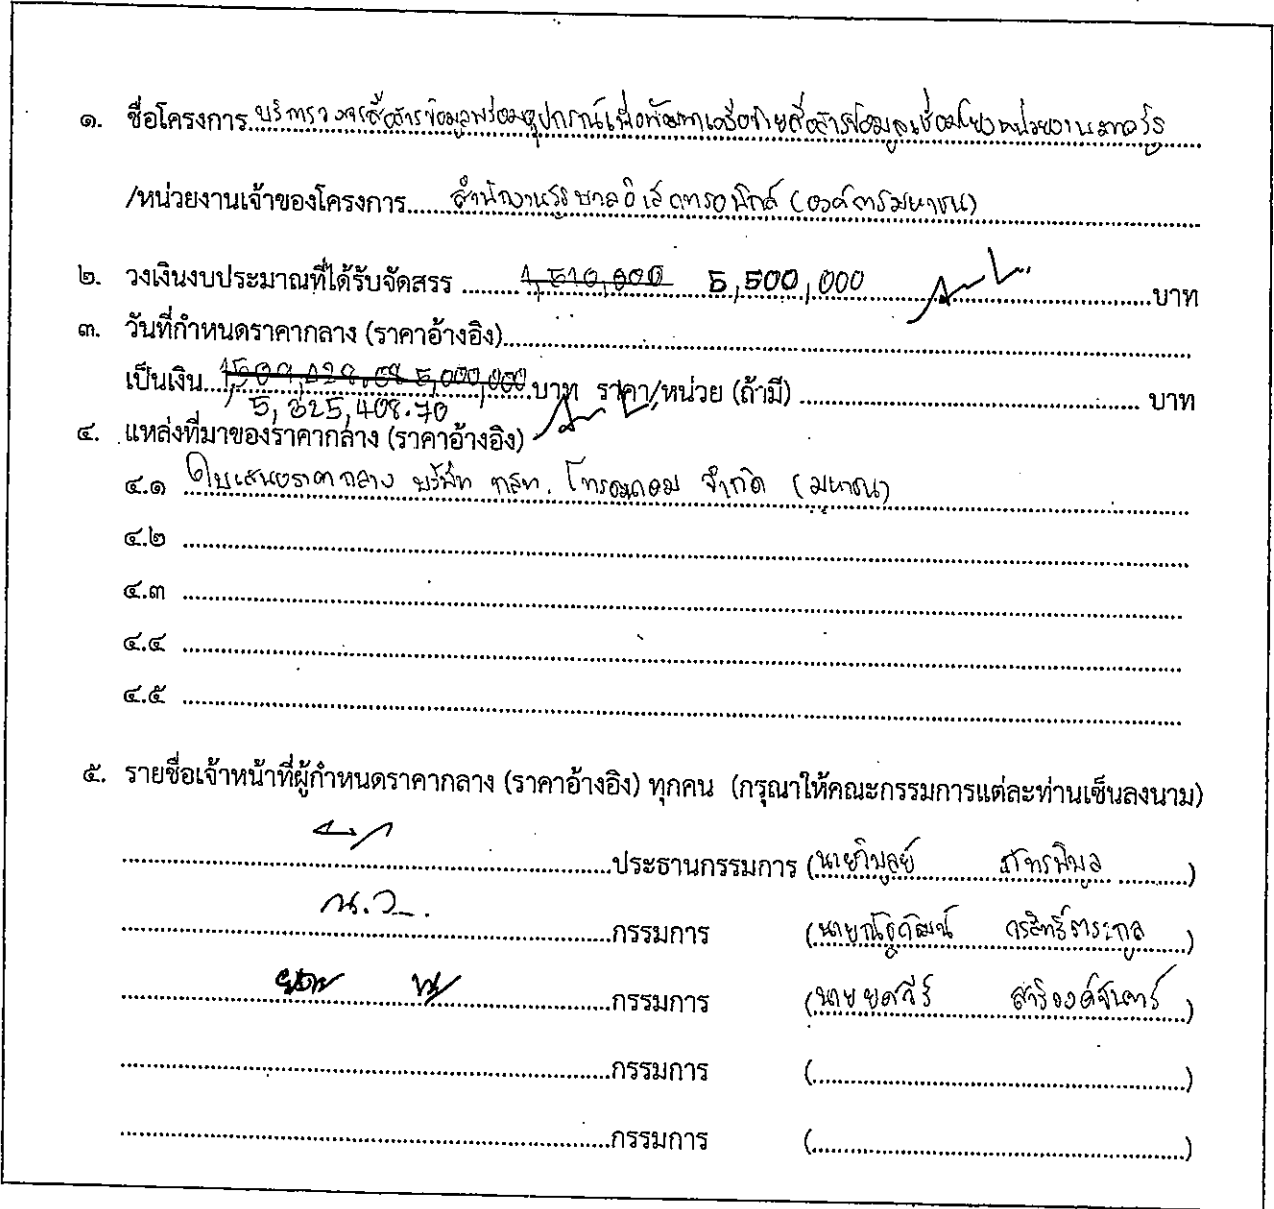 ๑. ชื่อโครงการ บริการวงจรสื่อสารข้อมูลพร้อมอุปกรณ์เพื่อพัฒนาเครือข่ายสื่อสารข้อมูลเชื่อมโยงหน่วยงานภาครัฐ
/หน่วยงานเจ้าของโครงการ..... สำนักงานรัฐบาลอิเล็กทรอนิกส์ (องค์การมหาชน)
๒. วงเงินงบประมาณที่ได้รับจัดสรร ........ 1,510,000 5,500,000 ........บาท
๓. วันที่กำหนดราคากลาง (ราคาอ้างอิง)........
เป็นเงิน... 5,000,000 บาท ราคา/หน่วย (ถ้ามี) ........ บาท
5,325,408.70
๔. แหล่งที่มาของราคากลาง (ราคาอ้างอิง)
๔.๑ ใบเสนอราคากลาง บริษัท กสท. โทรคมนาคม จำกัด (มหาชน)
๔.๒ ........
๔.๓ ........
๔.๔ ........
๔.๕ ........
๕. รายชื่อเจ้าหน้าที่ผู้กำหนดราคากลาง (ราคาอ้างอิง) ทุกคน (กรุณาให้คณะกรรมการแต่ละท่านเซ็นลงนาม)
........ประธานกรรมการ (นายวิบูลย์ ภัทรพิบูล)
........กรรมการ (นายณัฐวัฒน์)
........กรรมการ (นายยศวีร์)
........กรรมการ (........)
........กรรมการ (........)